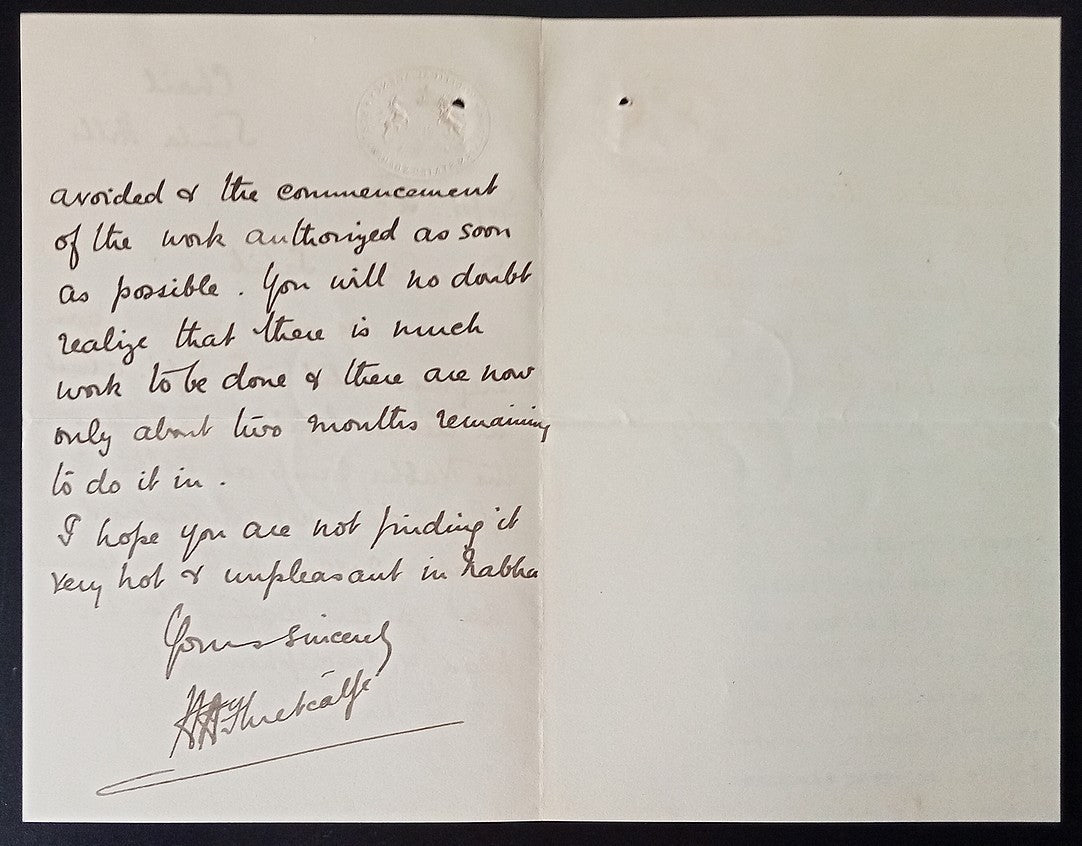 avoided & the commencement
of the work authorized as soon
as possible. You will no doubt
realize that there is much
work to be done & there are now
only about two months remaining
to do it in.
I hope you are not finding it
very hot & unpleasant in Nabha
Yours sincerely
Metcalfe